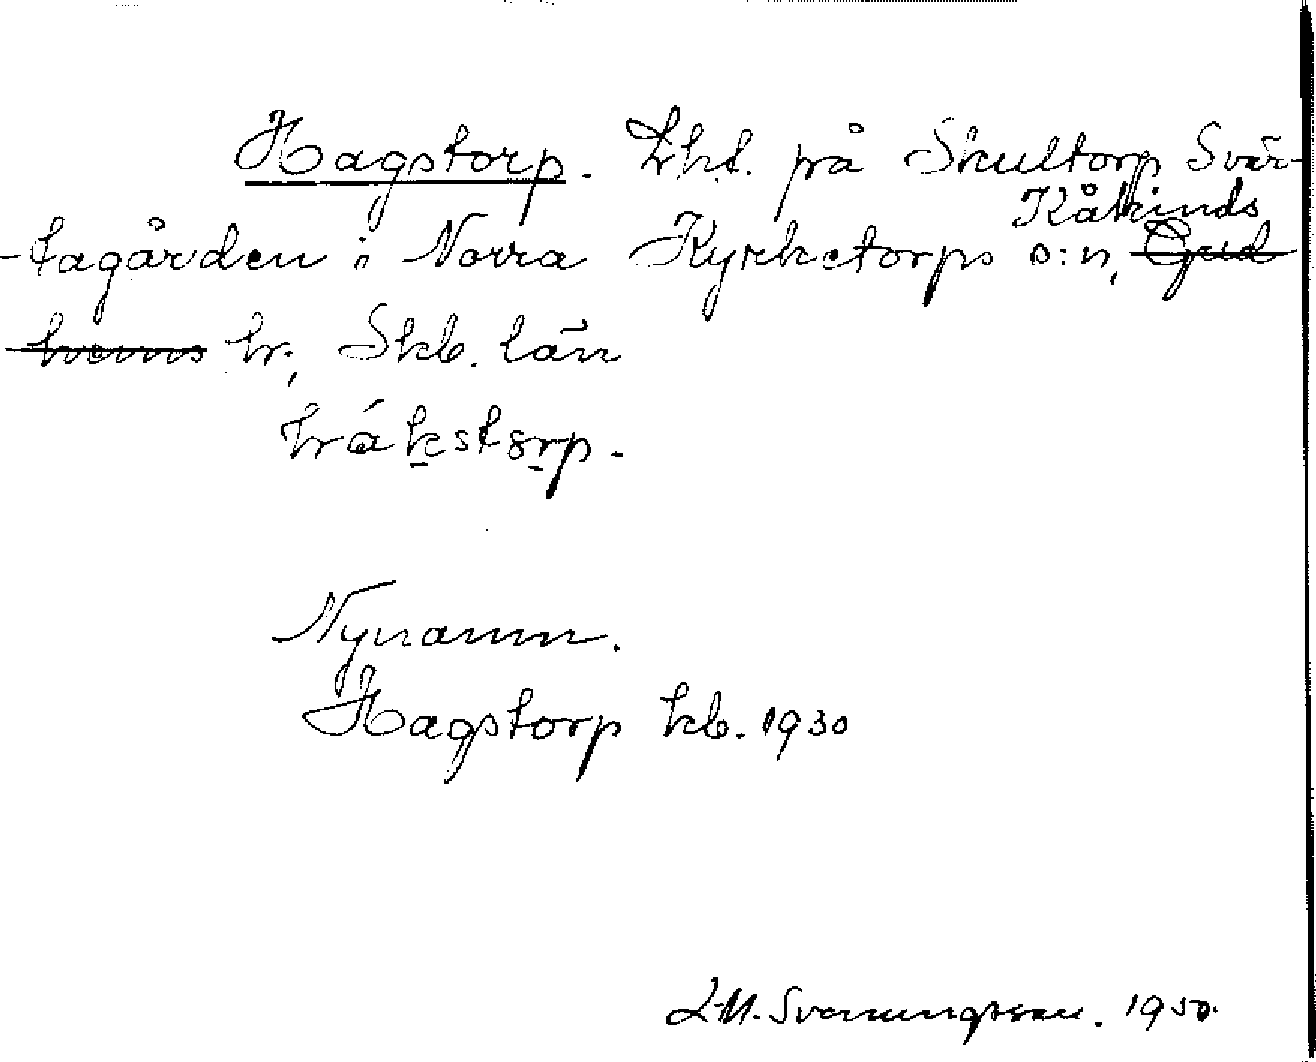 Hagstorp. Lht. på Skultorp Svär-
Kåkinds
-tagården i Norra Kyrketorps s:n, Gud
hems hr, Skb. län
hrákstorp.
Nynamn.
Hagstorp kb. 1930
L-M. Svenungsson. 1950.